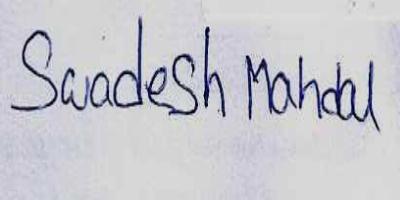 Swadesh Mandal